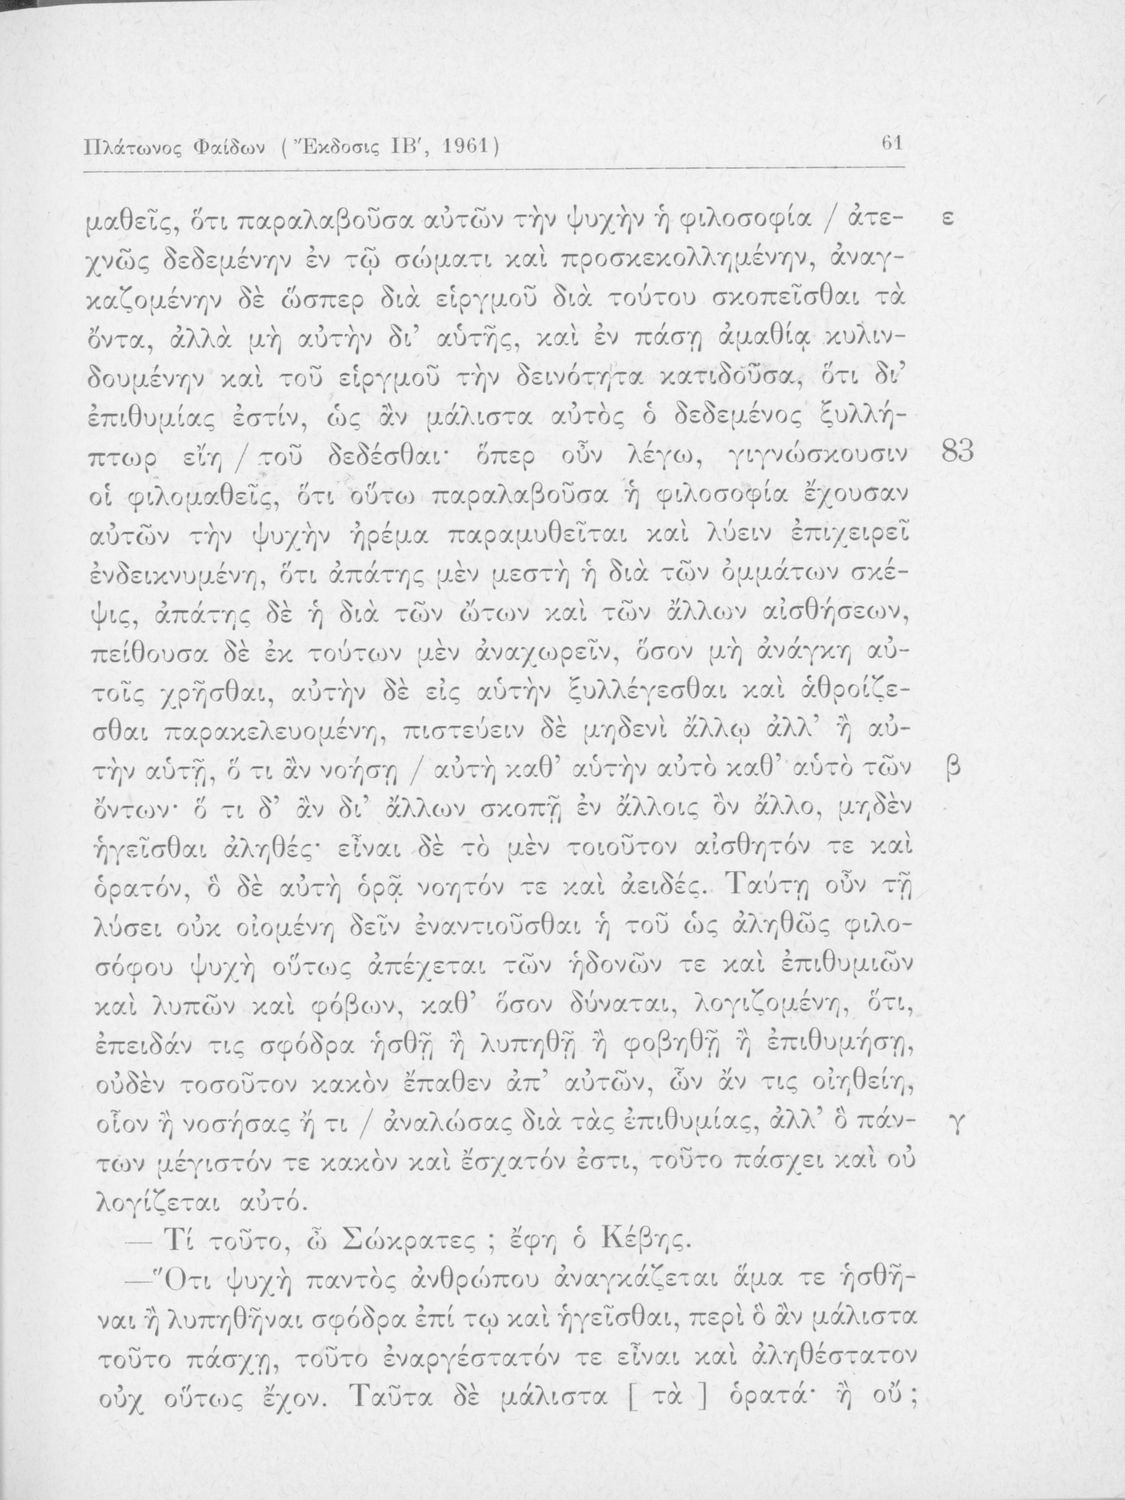 Πλάτωνος Φαίδων ( Ἔκδοσις ΙΒ′, 1961) 61
μαθεῖς, ὅτι παραλαβοῦσα αὐτῶν τὴν ψυχὴν ἡ φιλοσοφία / ἀτε- ε
χνῶς δεδεμένην ἐν τῷ σώματι καὶ προσκεκολλημένην, ἀναγ-
καζομένην δὲ ὥσπερ διὰ εἱργμοῦ διὰ τούτου σκοπεῖσθαι τὰ
ὄντα, ἀλλὰ μὴ αὐτὴν δι’ αὑτῆς, καὶ ἐν πάσῃ ἀμαθίᾳ κυλιν-
δουμένην καὶ τοῦ εἱργμοῦ τὴν δεινότητα κατιδοῦσα, ὅτι δι’
ἐπιθυμίας ἐστίν, ὡς ἂν μάλιστα αὐτὸς ὁ δεδεμένος ξυλλή-
πτωρ εἴη / τοῦ δεδέσθαι· ὅπερ οὖν λέγω, γιγνώσκουσιν 83
οἱ φιλομαθεῖς, ὅτι οὕτω παραλαβοῦσα ἡ φιλοσοφία ἔχουσαν
αὐτῶν τὴν ψυχὴν ἠρέμα παραμυθεῖται καὶ λύειν ἐπιχειρεῖ
ἐνδεικνυμένη, ὅτι ἀπάτης μὲν μεστὴ ἡ διὰ τῶν ὀμμάτων σκέ-
ψις, ἀπάτης δὲ ἡ διὰ τῶν ὤτων καὶ τῶν ἄλλων αἰσθήσεων,
πείθουσα δὲ ἐκ τούτων μὲν ἀναχωρεῖν, ὅσον μὴ ἀνάγκη αὐ-
τοῖς χρῆσθαι, αὐτὴν δὲ εἰς αὑτὴν ξυλλέγεσθαι καὶ ἁθροίζε-
σθαι παρακελευομένη, πιστεύειν δὲ μηδενὶ ἄλλῳ ἀλλ’ ἢ αὐ-
τὴν αὑτῇ, ὅ τι ἂν νοήσῃ / αὐτὴ καθ’ αὑτὴν αὐτὸ καθ’ αὑτὸ τῶν β
ὄντων· ὅ τι δ’ ἂν δι’ ἄλλων σκοπῇ ἐν ἄλλοις ὂν ἄλλο, μηδὲν
ἡγεῖσθαι ἀληθές· εἶναι δὲ τὸ μὲν τοιοῦτον αἰσθητόν τε καὶ
ὁρατόν, ὃ δὲ αὐτὴ ὁρᾷ νοητόν τε καὶ ἀειδές. Ταύτῃ οὖν τῇ
λύσει οὐκ οἰομένη δεῖν ἐναντιοῦσθαι ἡ τοῦ ὡς ἀληθῶς φιλο-
σόφου ψυχὴ οὕτως ἀπέχεται τῶν ἡδονῶν τε καὶ ἐπιθυμιῶν
καὶ λυπῶν καὶ φόβων, καθ’ ὅσον δύναται, λογιζομένη, ὅτι,
ἐπειδάν τις σφόδρα ἡσθῇ ἢ λυπηθῇ ἢ φοβηθῇ ἢ ἐπιθυμήσῃ,
οὐδὲν τοσοῦτον κακὸν ἔπαθεν ἀπ’ αὐτῶν, ὧν ἄν τις οἰηθείη,
οἷον ἢ νοσήσας ἤ τι / ἀναλώσας διὰ τὰς ἐπιθυμίας, ἀλλ’ ὃ πάν- γ
των μέγιστόν τε κακὸν καὶ ἔσχατόν ἐστι, τοῦτο πάσχει καὶ οὐ
λογίζεται αὐτό.
— Τί τοῦτο, ὦ Σώκρατες ; ἔφη ὁ Κέβης.
—Ὅτι ψυχὴ παντὸς ἀνθρώπου ἀναγκάζεται ἅμα τε ἡσθῆ-
ναι ἢ λυπηθῆναι σφόδρα ἐπί τῳ καὶ ἡγεῖσθαι, περὶ ὃ ἂν μάλιστα
τοῦτο πάσχῃ, τοῦτο ἐναργέστατόν τε εἶναι καὶ ἀληθέστατον
οὐχ οὕτως ἔχον. Ταῦτα δὲ μάλιστα [ τὰ ] ὁρατά· ἢ οὔ ;